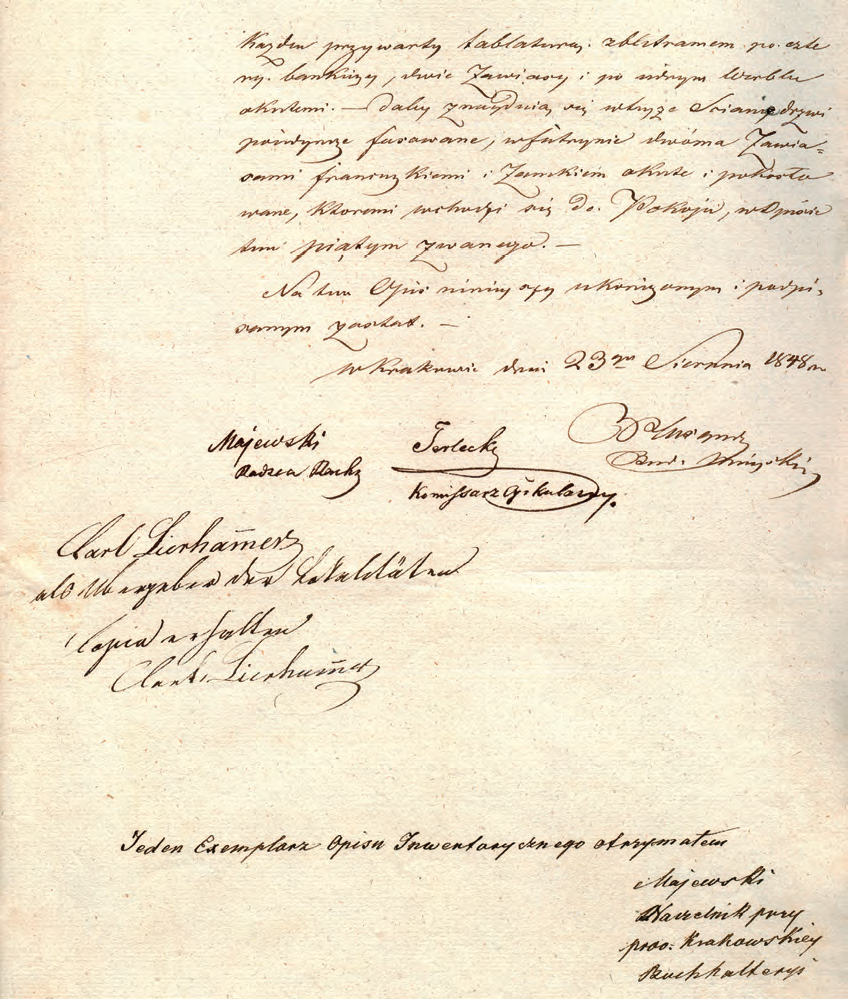 Każden przywarty tablaturą: zblitramem po czte
ry. bankizy, dwie Zawiasy i po iednym Werblu
okutemi. — daley znayduią się wteyże Scianie drzwi
poiedyncze fasowane, wfutrynie dwóma Zawia=
sami francuzkiemi i Zamkiem okute i pokosto
wane, ktoremi wchodzi się do Pokoju, wOpisie
tem piątym zwanego. —
Na tem Opis ninieyszy ukończonym i podpi=
sanym został. —
w Krakowie dnia 23go Sierpnia 1848 r
Majewski Terlecki
Radzca Rachy
Komissarz Cyrkularny.
Carl Lierham̄er
als Übergeber der Lokalitäten
Copia erhalten
Carl Lierham̄er
Jeden Exemplarz Opisu Inwentarycznego otrzymałem
Majewski
Naczelnik przy
prow: Krakowskiey
Buchhalteryi